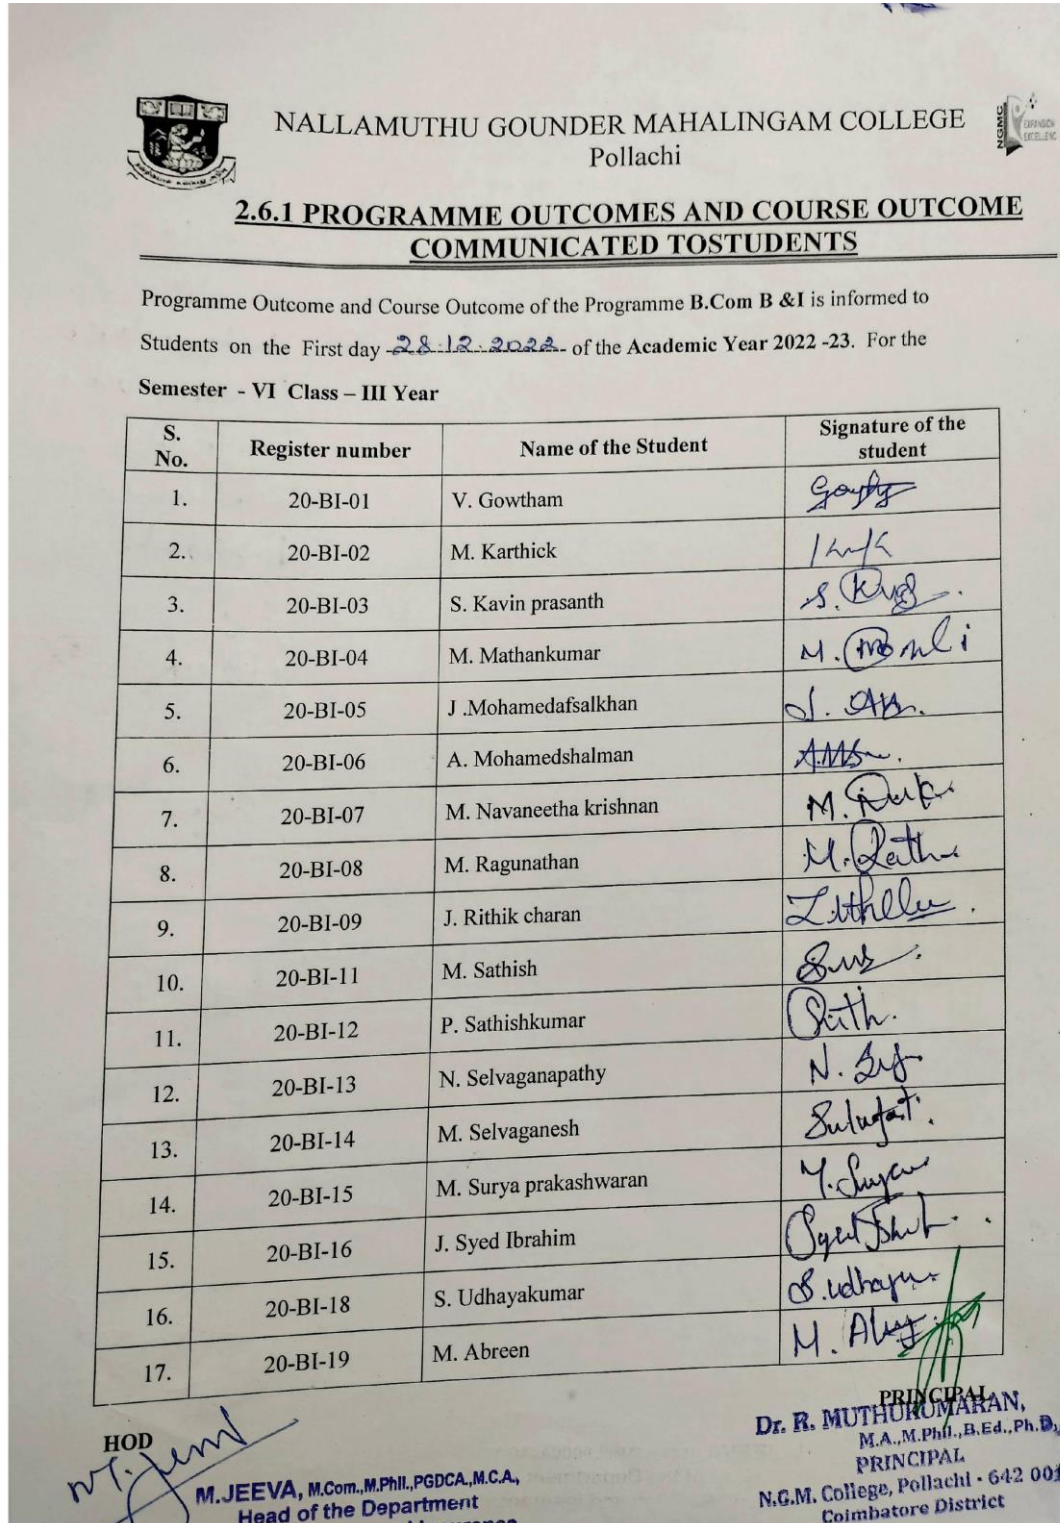 NALLAMUTHU GOUNDER MAHALINGAM COLLEGE
Pollachi
NGMC
2.6.1 PROGRAMME OUTCOMES AND COURSE OUTCOME
COMMUNICATED TOSTUDENTS
Programme Outcome and Course Outcome of the Programme B.Com B &I is informed to
Students on the First day 28.12.2022 of the Academic Year 2022 -23. For the
Semester - VI Class – III Year
S. No. Register number Name of the Student Signature of the student
1. 20-BI-01 V. Gowtham
2. 20-BI-02 M. Karthick
3. 20-BI-03 S. Kavin prasanth
4. 20-BI-04 M. Mathankumar
5. 20-BI-05 J .Mohamedafsalkhan
6. 20-BI-06 A. Mohamedshalman
7. 20-BI-07 M. Navaneetha krishnan
8. 20-BI-08 M. Ragunathan
9. 20-BI-09 J. Rithik charan
10. 20-BI-11 M. Sathish
11. 20-BI-12 P. Sathishkumar
12. 20-BI-13 N. Selvaganapathy
13. 20-BI-14 M. Selvaganesh
14. 20-BI-15 M. Surya prakashwaran
15. 20-BI-16 J. Syed Ibrahim
16. 20-BI-18 S. Udhayakumar
17. 20-BI-19 M. Abreen
HOD
M.JEEVA, M.Com.,M.Phil.,PGDCA.,M.C.A.,
Head of the Department
PRINCIPAL
Dr. R. MUTHUKUMARAN,
M.A.,M.Phil.,B.Ed.,Ph.D,
PRINCIPAL
N.G.M. College, Pollachi - 642 001
Coimbatore District